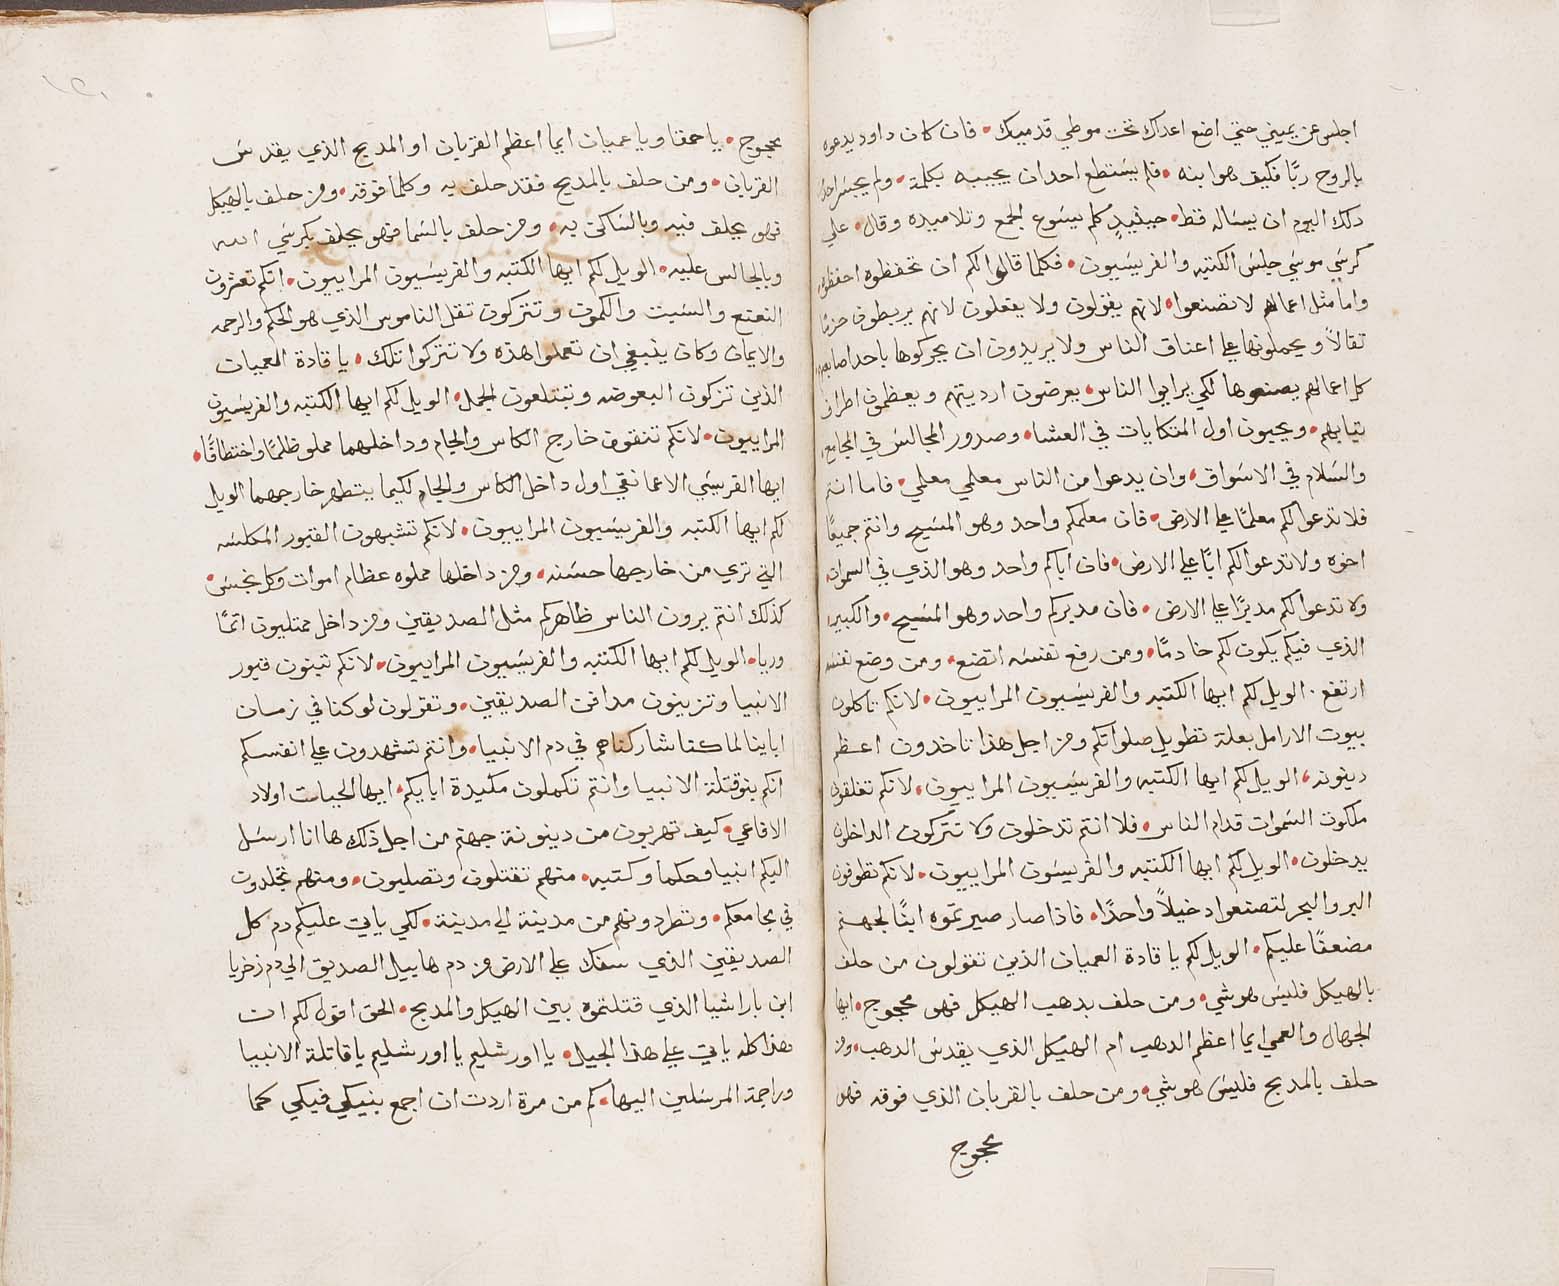 اجلس عن يميني حتي اضع اعداك تحت موطي قدميك • فان كان داود يدعوه
بالروح ربًا فكيف هو ابنه • فلم يستطع احد ان يجيبه بكلمة • ولم يجسر احد
دلك اليوم ان يساله قط • حينيدٍ كلم يسوع الجمع وتلاميده وقال • علي
كرسي موسي جلس الكتبه والفريسيون • فكلما قالوا لكم ان تحفظوه احفظوه
واما مثل اعمالهم لا تصنعوا • لانهم يقولون ولا يفعلون لانهم يربطون حزمًا
تقالاً ويحملونها علي اعناق الناس ولا يريدون ان يحركوها باحد اصابعهم
كل اعمالهم يصنعوها لكي يرايوا الناس • يعرضون ارديتهم ويعظمون اطراف
تيابهم • ويحبون اول المتكايات في العشا • وصدور المجالس في المجامع •
والسلام في الاسواق • وان يدعوا من الناس معلمي معلمي • فاما انتم
فلا تدعوا لكم معلمًا علي الارض • فان معلمكم واحد وهو المسيح وانتم جميعًا
اخوه ولا تدعوا لكم ابًا علي الارض • فان اباكم واحد وهو الذي في السموات
ولا تدعوا لكم مدبرًا علي الارض • فان مدبركم واحد وهو المسيح • والكبير
الذي فيكم يكون لكم خادمًا • ومن رفع نفسه اتضع • ومن وضع نفسه
ارتفع • الويل لكم ايها الكتبه والفريسيون المراييون • لانكم تاكلون
بيوت الارامل بعلة تطويل صلواتكم ومن اجل هذا تاخدون اعظم
دينونه • الويل لكم ايها الكتبه والفريسيون المراييون • لانكم تغلقون
ملكوت السموات قدام الناس • فلا انتم تدخلون ولا تتركون الداخلون
يدخلون • الويل لكم ايها الكتبه والفريسون المراييون • لانكم تطوفون
البر والبحر لتصنعوا دخيلاً واحدًا • فاذا صار صيرتموه ابنًا لجهنم
مضعفًا عليكم • الويل لكم يا قادة العميان الذين تقولون من حلف
بالهيكل فليس هو شي • ومن حلف بدهب الهيكل فهو محجوج • ايها
الجهال والعمي ايما اعظم الدهب ام الهيكل الذي يقدس الدهب • ومن
حلف بالمدبح فليس هو شي • ومن حلف بالقربان الذي فوقه فهو
محجوج
محجوج • يا حمقا ويا عميان ايما اعظم القربان او المدبح الذي يقدس
القربان • ومن حلف بالمدبح فقد حلف به وكلما فوقه • ومن حلف بالهيكل
فهو يحلف فيه وبالساكن به • ومن حلف بالسما فهو يحلف بكرسي الله
وبالجالس عليه • الويل لكم ايها الكتبه والفريسيون المراييون • انكم تعشرون
النعنع والسبت والكمون وتتركون تقل الناموس الذي هو الحكم والرحمه
والايمان وكان ينبغي ان تعملوا هذه ولا تتركوا تلك • يا قادة العميان
الذين تزكون البعوضه وتبتلعون الجمل • الويل لكم ايها الكتبه والفريسيون
المراييون • لانكم تنقون خارج الكاس والجام وداخلهما مملو ظلمًا واختطافًا •
ايها الفريسي الاعما نقي اول داخل الكاس والجام لكيما يتطهر خارجهما الويل
لكم ايها الكتبه والفريسيون المراييون • لانكم تشبهون القبور المكلسه
التي تري من خارجها حسنه • ومن داخلها مملوه عظام اموات وكل نجس •
كذلك انتم يرون الناس ظاهركم مثل الصديقين ومن داخل ممتليون اتمًا
وريا • الويل لكم ايها الكتبه والفريسيون المراييون • لانكم تبنون قبور
الانبيا وتزينون مدافن الصديقين • وتقولون لو كنا في زمان
اباينا لما كنا شاركناهم في دم الانبيا • وانتم تشهدون علي انفسكم
انكم بنو قتلة الانبيا وانتم تكملون مكيدة ابايكم • ايها الحيات اولاد
الافاعي • كيف تهربون من دينونة جهنم من اجل ذلك ها انا ارسل
اليكم انبيا وحكما وكتبه • منهم تقتلون وتصلبون • ومنهم تجلدون
في مجامعكم • وتطردونهم من مدينة الي مدينة • لكي ياتي عليكم دم كل
الصديقين الذي سفك علي الارض من دم هابيل الصديق الي دم زخريا
ابن باراشيا الذي قتلتموه بين الهيكل والمدبح • الحق اقول لكم ان
هذا كله ياتي علي هذا الجيل • يا اورشليم يا اورشليم يا قاتلة الانبيا
وراجمة المرسلين اليها • كم من مرة اردت ان اجمع بنيكي فيكي كما